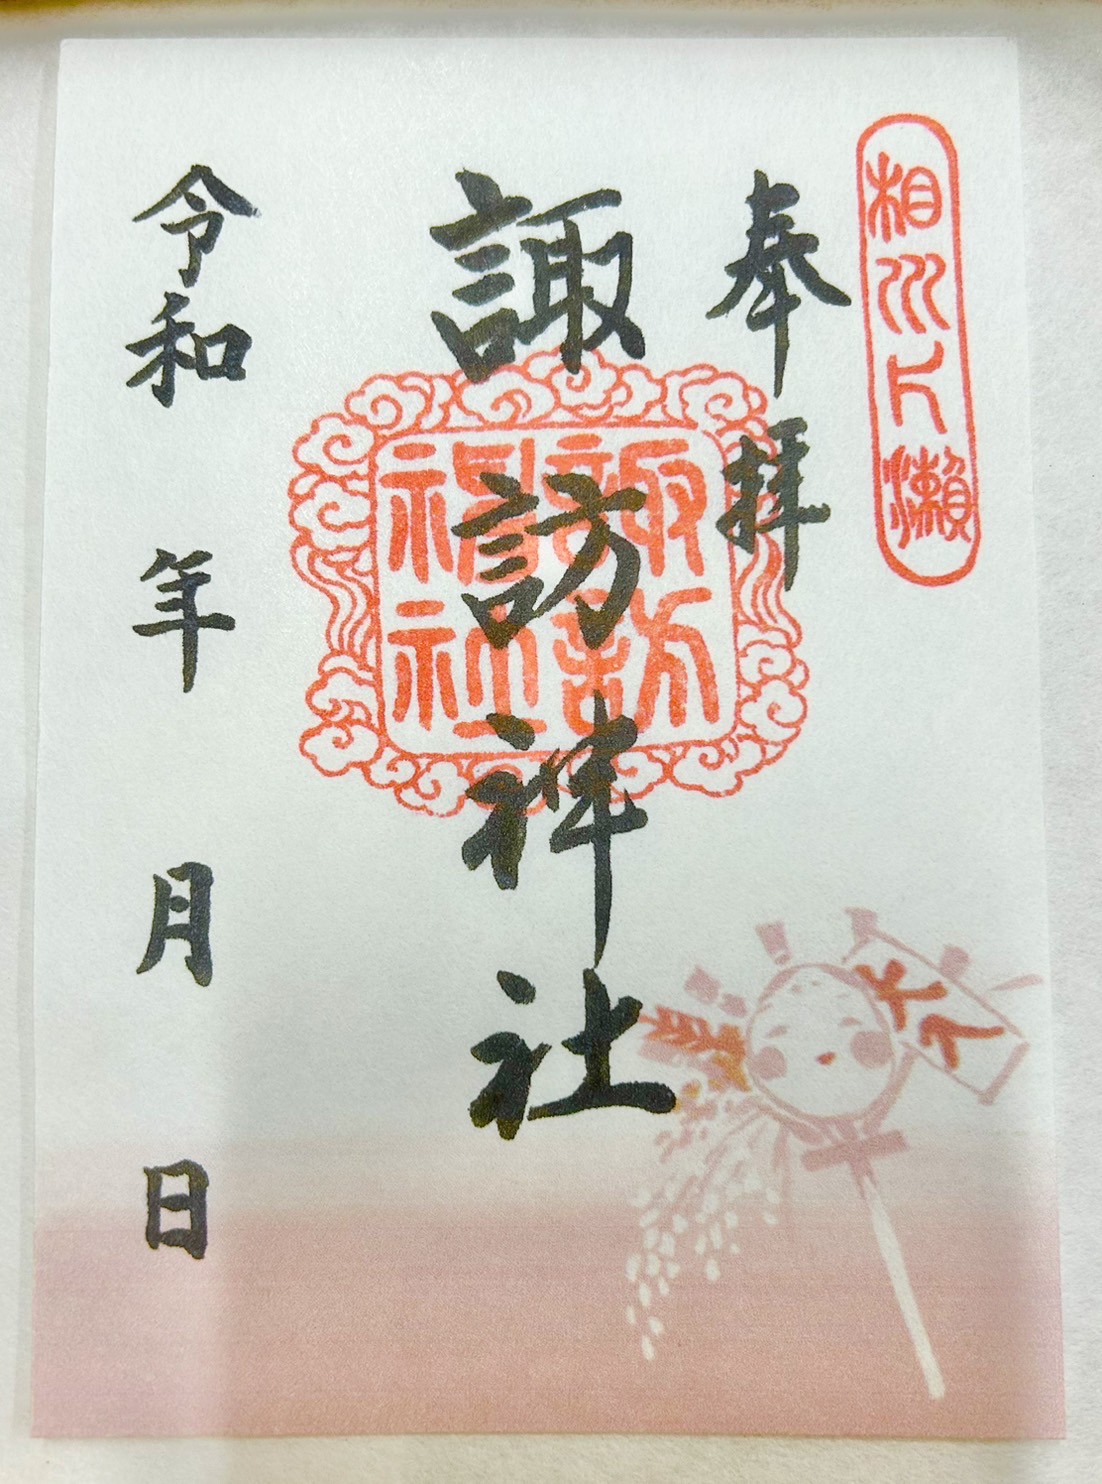 相州片瀬
奉拝
諏訪神社
諏訪
社
令和 年 月 日
大入